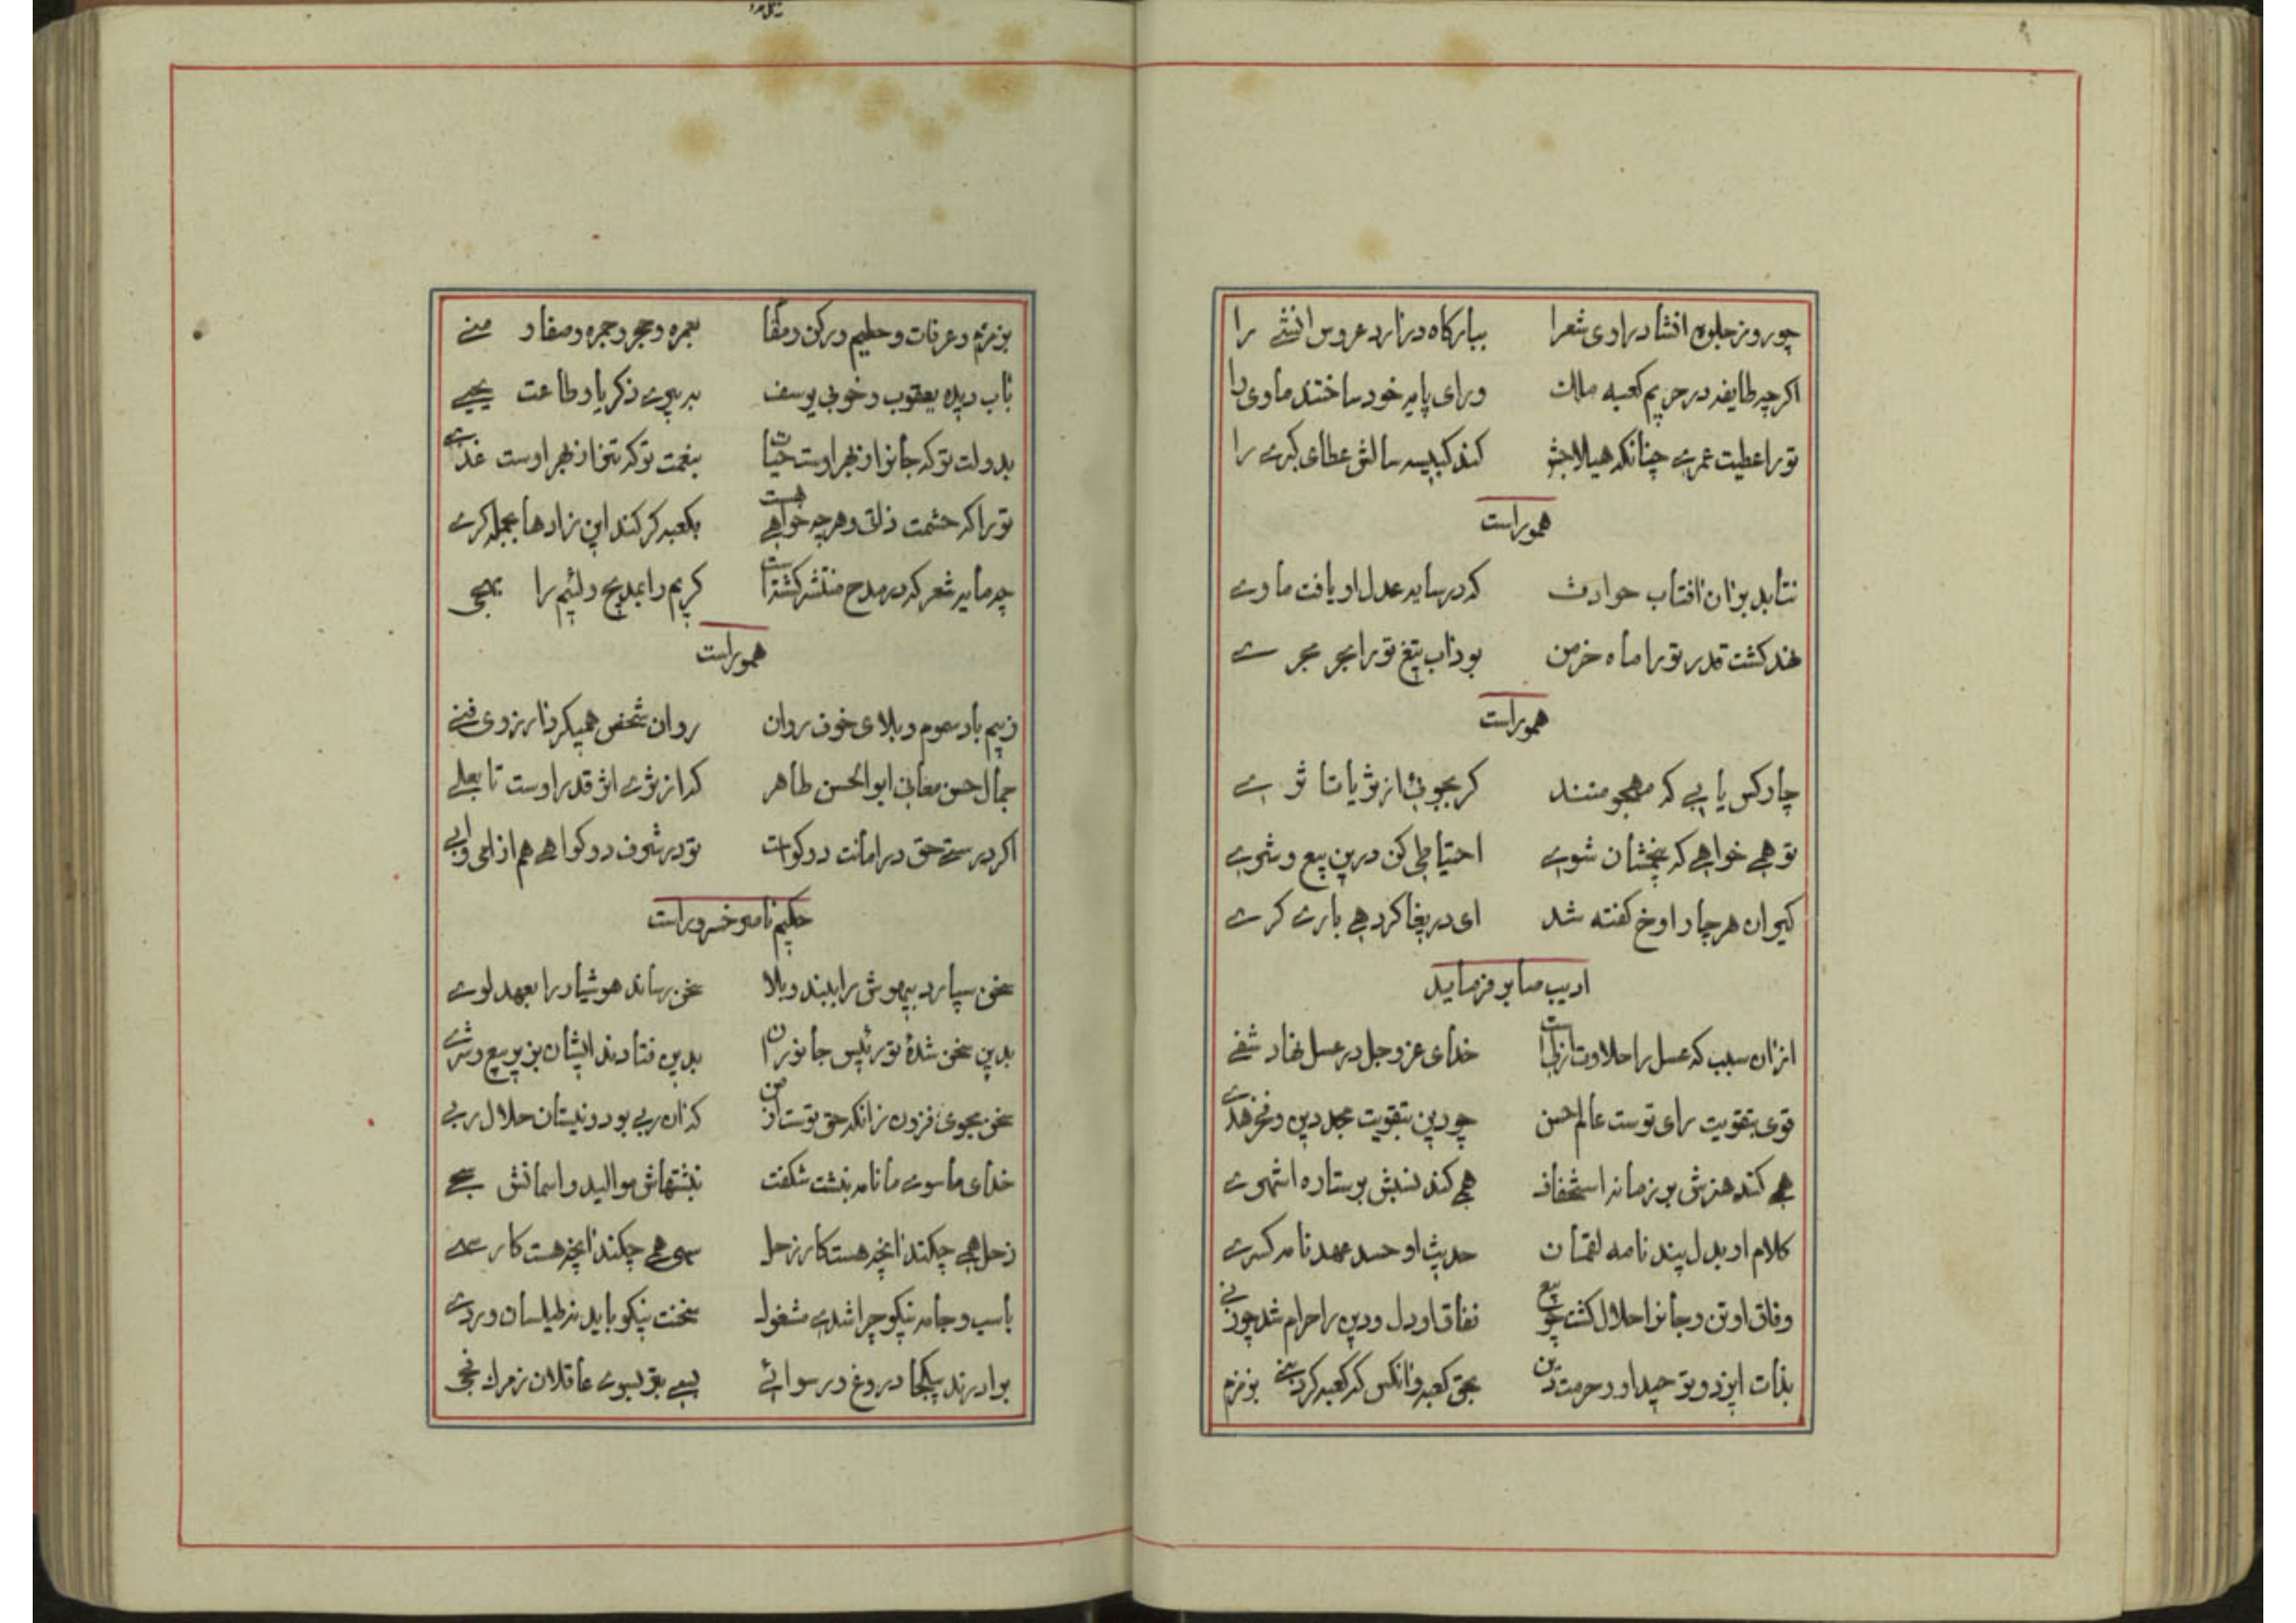 چو روز جلوهٔ انشاد راوی شعرا ببارکاه درارد عروس انشے را
اکرچه طایفه در حریم کعبه ملك ورای پایه خود ساختند ماوی را
تورا عطیت عمرے چنانکه هیلاجش کند کبیسه سالش عطای کبرے را
هموراست
نتابد بران افتاب حوادث که در سایه عدل او یافت ماوے
نهد کشت قدر تورا ماه خرمن بوداب تیغ تورا بحر مجر ے
هموراست
چار کس یابی که مهجو متند کر بجوئی از ثریا تا ثر ے
توهمی خواهی که بخششان شوی احتیاطی کن درین بیع و شرے
کیر ان هر چار اوخ کفته شد ای دریغا کردهی بارے کر ے
ادیب صابر فرماید
ازان سبب که عسل را حلاوت از لب است خدای عز وجل در عسل نهاد شفے
قوی بتقویت رای توست عالم حسن چو دین بتقویت مجد دین و فخر هدے
همی کند هنرش بر زمانه استخفاف همی کند نسبش بر ستاره استهزے
کلام او بدل پند نامه لقمان حدیث او حسد عهد نامه کسرے
وفاق او تن و جانرا حلال کشت چو بیع نفاق او دل و دین را حرام شد چو ربی
بذات ایزد و توحید او و حرمت دین بحق کعبه و انکس که کعبه کرد بنے بزمزم
بزمزم و عرفات و حطیم و رکن و مقام بعمره و حجر و جمره و صفا و منے
باب دیده یعقوب و خوبی یوسف بپیرے زکریا و طاعت یحیے
بدولت تو که جانرا ازفر اوست حیات بنعمت تو که تن را ازفر اوست غذے
تورا که حشمت ذاتی و هرچه خواهی هست بکعبه کر کند این نزادها بجمله کرے
چه مایه شعر که در مدح منتشر کشته است کریم را بمدیح و لئیم را بهجی
هموراست
ز بیم باد سموم و بلای خون روان روان شخص همیکرد ارزوی فنے
جمال حسن معانی ابوالحسن طاهر که از ثرے اثر قدر اوست تا بعلے
اکر درستے حق در امانت دو کواست تو در شرف دو کواهے هم از امی و ابی
حکیم نامور خسرو راست
سخن سپارد بیهوش را ببند و بلا سخن رساند هوشیار را بعهد لوے
بدین سخن شدهٔ تو رئیس جانوران بدین فتادند ایشان بزیر بیع و شرے
سخن مجوی فزون زانکه حق توست از من که ان ربی بود و نیستان حلال ربی
خدای ماسوے ما نامه نبشت شکفت نبشتهاش موالید و اسمانش سحے
زحل همی چکند انچه هست کار زحل سهی همی چکند انچه هست کار سهے
باسب و جامه نیکو چرا شدے مشغول سخنت نیکو باید نه طیلسان و ردے
برادرند بیکجا دروغ و رسوائے بسے بتر بسوے عاقلان ز مرك فجی